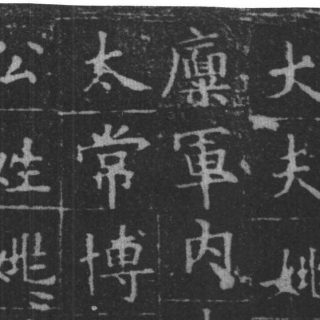 大夫姚
廩軍内
太常博
公姓姚